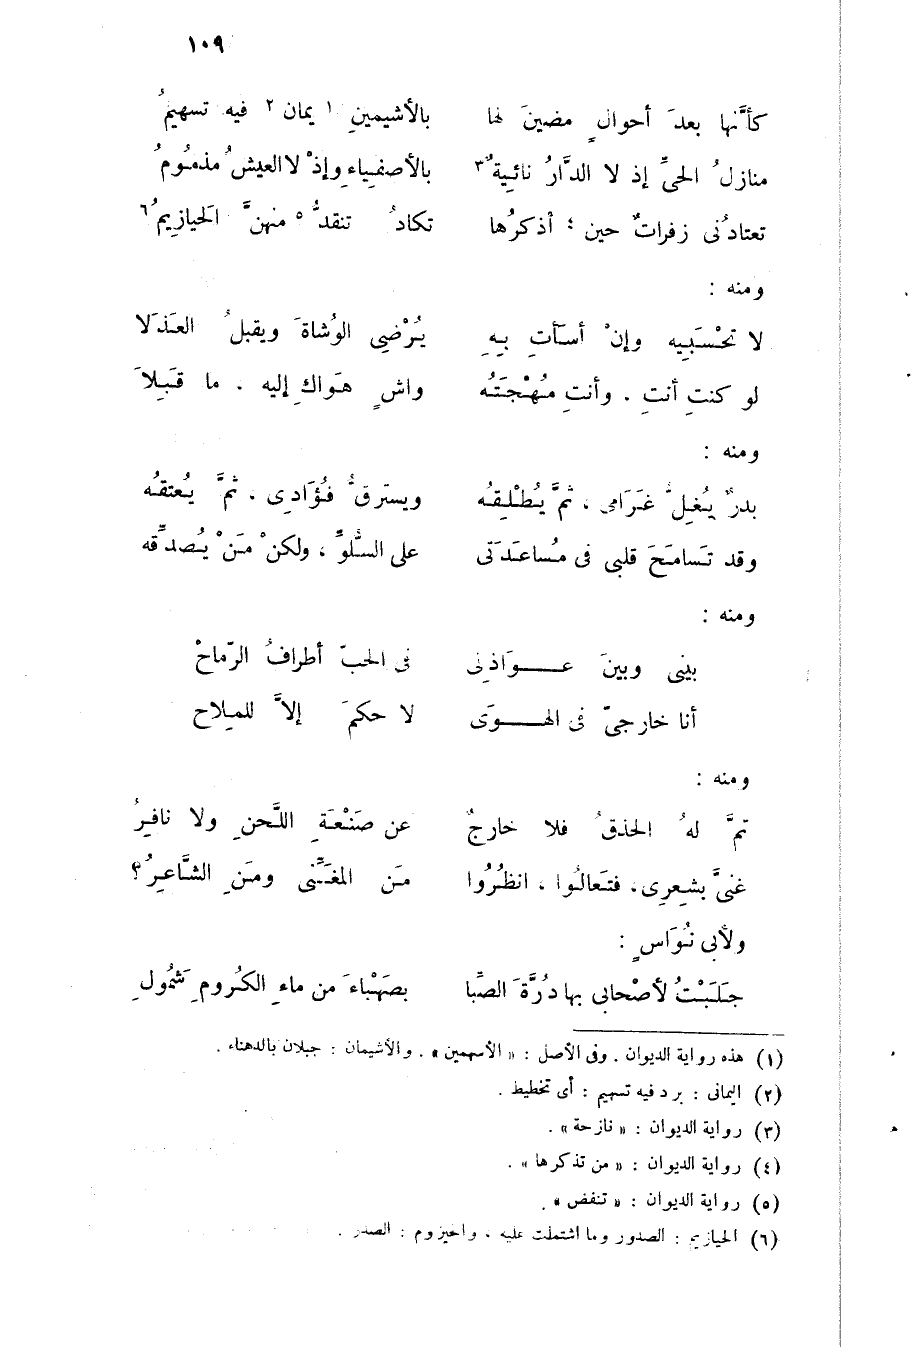 ١٠٩
كأنَّها بعدَ أحوالٍ مضينَ لها بالأشيمينِ ١ يمان ٢ فيه تسهيمُ
منازلُ الحيِّ إذ لا الدَّارُ نائيةٌ ٣ بالأصفياءِ وإذْ لا العيشُ مذمُومُ
تعتادُنى زفراتٌ حين ٤ أذكرُها تكادُ تنقدُّ ٥ منهنَّ الحيازِيمُ ٦
ومنه :
لا تحْسَبِيه وإنْ أسَأتِ بِهِ يُرْضِى الوُشاةَ ويقبلُ العَذَلا
لو كنتِ أنتِ . وأنتِ مُهْجَتَهُ واشٍ هَواكِ إليه . ما قَبِلاَ
ومنه :
بدرٌ يُغِلُّ غَرَامى ، ثمَّ يُطْلِقُه ويسترقُّ فُؤَادِى ، ثمَّ يُعتقُه
وقد تَسامَحَ قلبى فى مُساعَدَتى على السُّلوِّ ، ولكنْ مَنْ يُصدِّقه
ومنه :
بينى وبينَ عـــوَاذلى فى الحبّ أطرافُ الرّماحْ
أنا خارجىّ فى الهـــوَى لا حكمَ إلاَّ للمِلاح
ومنه :
تمَّ لهُ الحذقُ فلا خارجٌ عن صَنْعَةِ اللَّحنِ ولا نافِرُ
غنىَّ بشِعرِى ، فتَعالُوا ، انظُرُوا مَن المغَنِّى ومَنِ الشَّاعِرُ؟
ولأبى نُوَاسٍ :
جَلَبْتُ لأصْحابى بها دُرَّةَ الصِّبا بصَهْباءَ من ماءِ الكُرومِ شَمُولِ
(١) هذه رواية الديوان . وفى الأصل : « الأسهمين » . والأشيمان : جبلان بالدهناء .
(٢) اليمانى : برد فيه تسهيم : أى تخطيط .
(٣) رواية الديوان : « نازحة » .
(٤) رواية الديوان : « من تذكرها » .
(٥) رواية الديوان : « تنفض » .
(٦) الحيازيم : الصدور وما اشتملت عليه ، والحيزوم : الصدر .